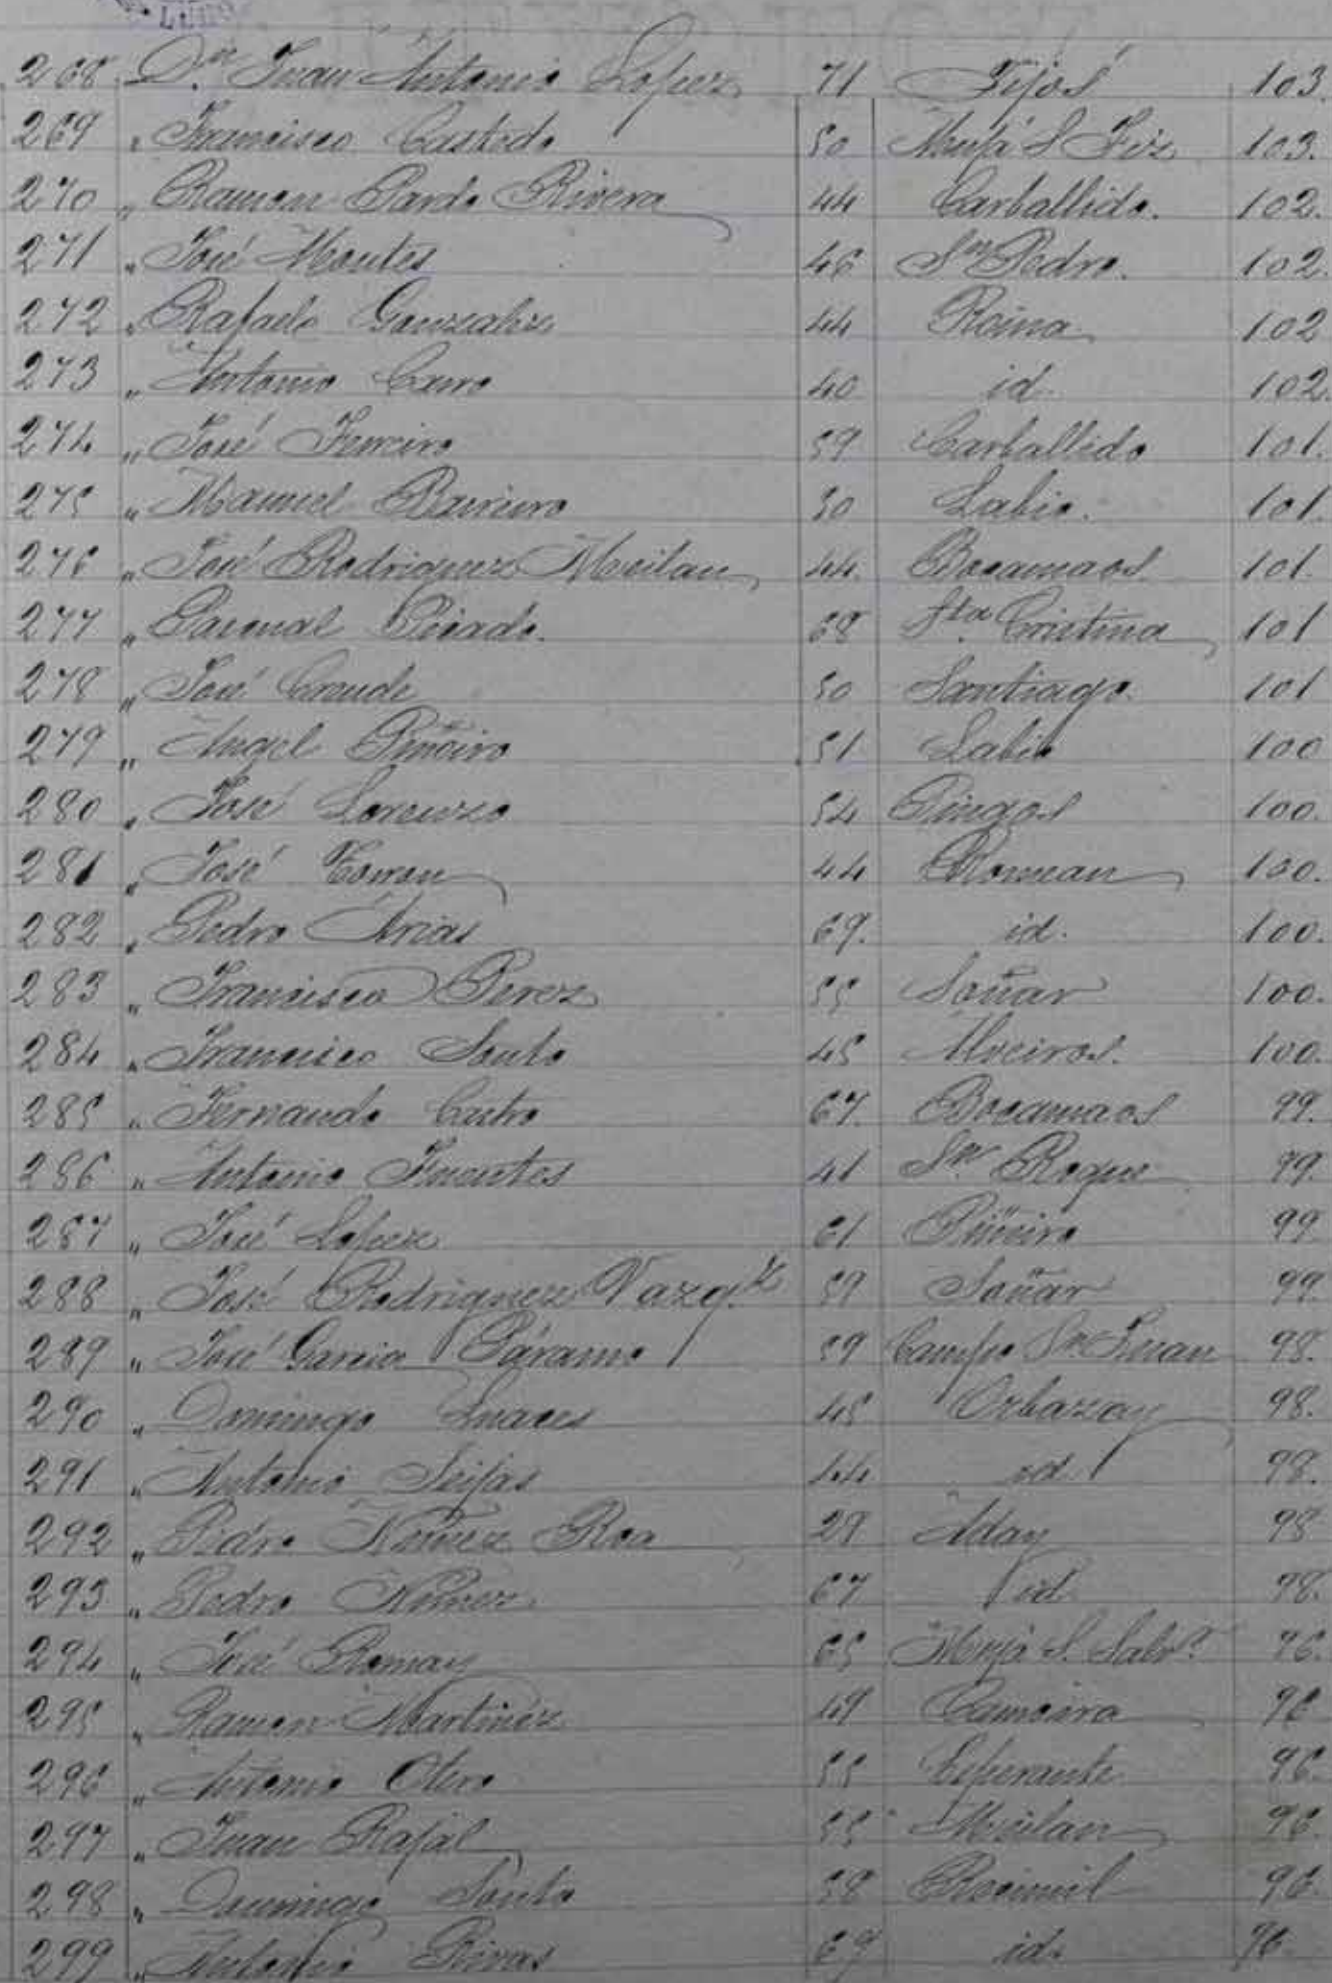 LUGO
268 Dn Juan Antonio Lopez 71 Tijos 103.
269 " Francisco Castedo 50 Muja S Fiz 103.
270 " Ramon Pardo Rivera 44 Carballido. 102.
271 " José Montes 46 Sn Pedro. 102.
272 " Rafael Gonzalez 44 Reina 102
273 " Antonio Curro 40 id. 102.
274 " José Ferreiro 59 Carballido 101.
275 " Manuel Barreiro 50 Labio. 101.
276 " José Rodriguez Meilan 44. Bocamaos 101.
277 " Pascual Picado. 68 Sta Cristina 101
278 " José Grande 50 Santiago. 101
279 " Angel Piñeiro 51 Labio 100
280 " José Lorenzo 54 Pingos 100.
281 " José Torron 44 Roman 100.
282 " Pedro Arias 69. id. 100.
283 " Francisco Perez 55 Soñar 100.
284 " Francisco Souto 45 Alveiros. 100.
285 " Fernando Castro 67. Bocamaos 99.
286 " Antonio Fuentes 41 Sn Roque 99.
287 " José Lopez 61 Piñeiro 99
288 " José Rodriguez Vazqz 59 Soñar 99.
289 " José Garcia Páramo 59 Campo Sn Juan 98.
290 " Domingo Linares 45 Orbazay 98.
291 " Antonio Seijas 44 id. 98.
292 " Pedro Nuñez Roa 29 Aday 98
293 " Pedro Nuñez. 67 id. 98.
294 " José Roman 65 Muja S. Salvr. 96.
295 " Ramon Martinez 49 Camoira 96
296 " Antonio Otero 55 Esperante 96.
297 " Juan Rafal 55 Meilan 96.
298 " Domingo Souto 58 Recimil 96
299 " Antonio Rivas 69 id. 96.